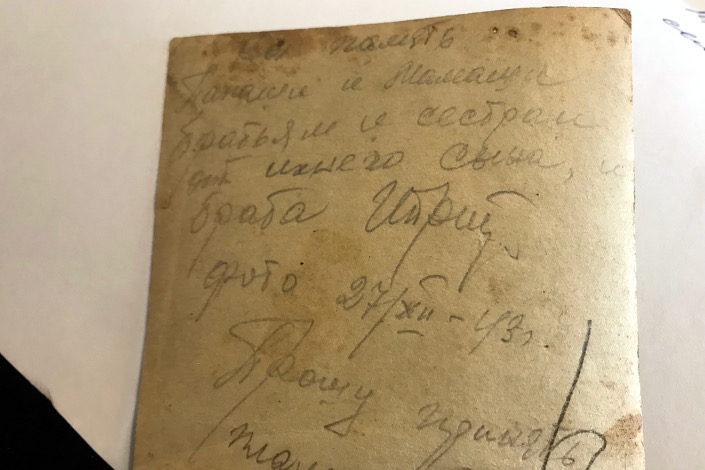 на память
Папаши и Мамаши
братьям и сестрам
от ихнего сына, и
брата
фото 27/XII-43г.
Прошу принять